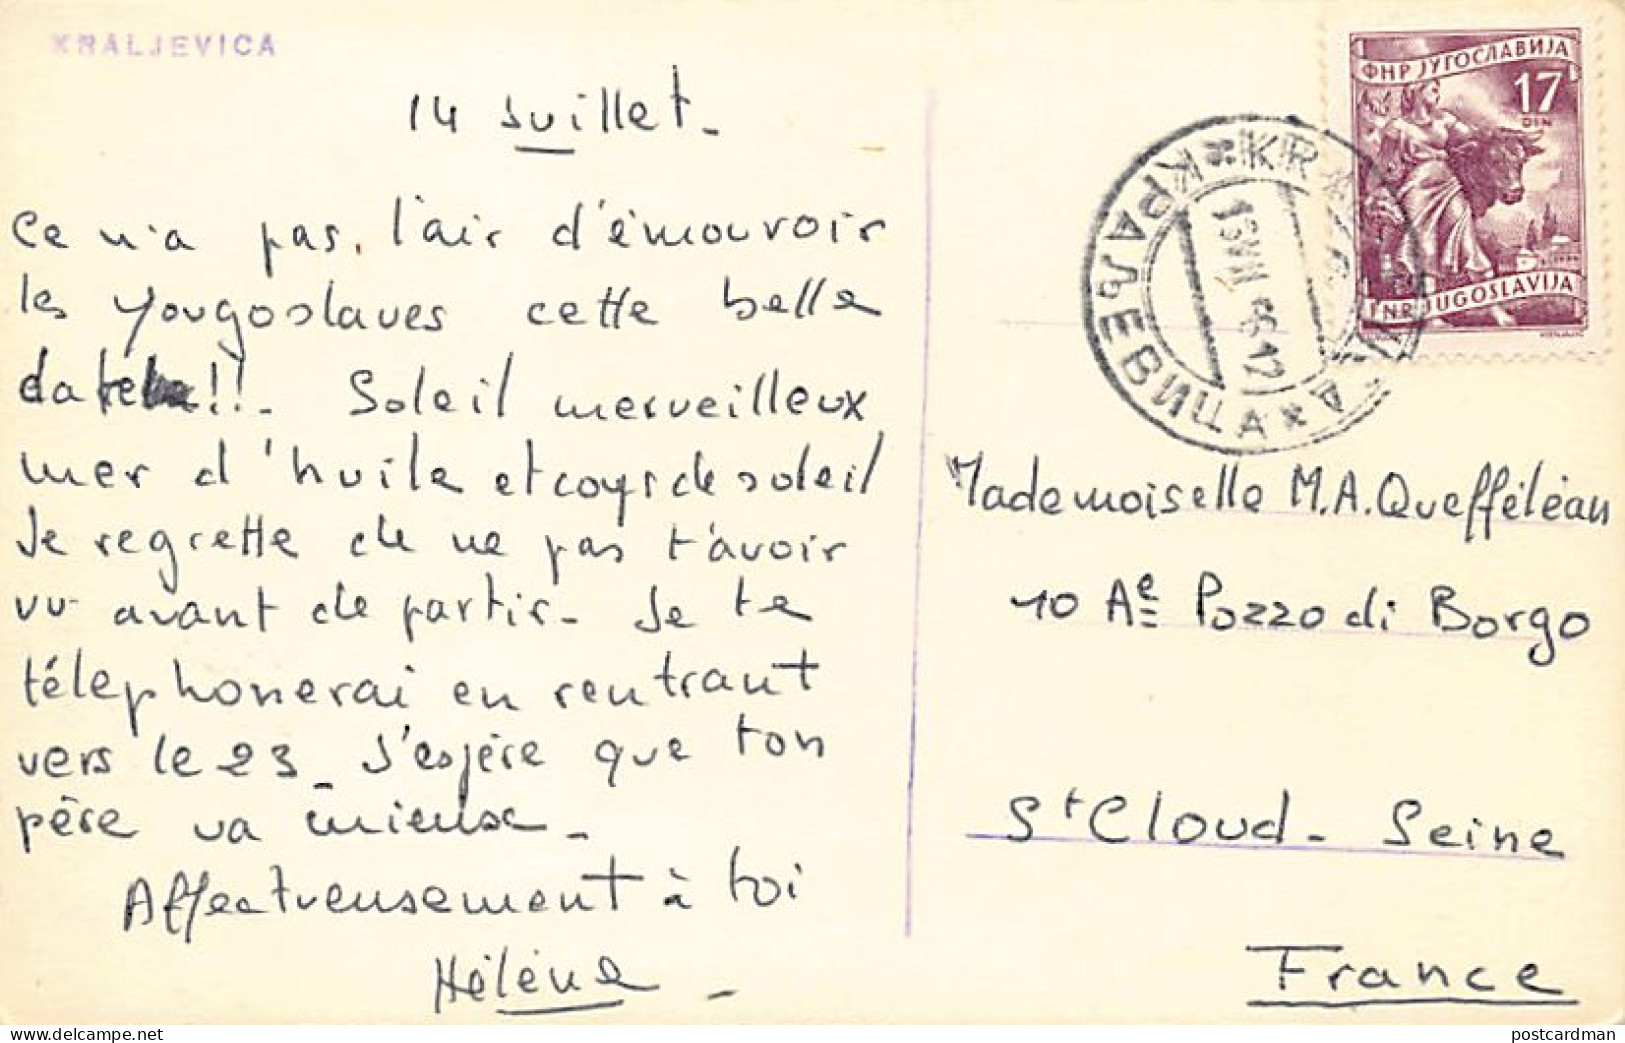 KRALJEVICA
14 Juillet_
Ce n'a pas l'air d'émouvoir
les Yougoslaves cette belle
date!!_ Soleil merveilleux
mer d'huile et coups de soleil
Je regrette de ne pas t'avoir
vu avant de partir_ Je te
téléphonerai en rentrant
vers le 23_ J'espère que ton
père va mieux_
Affectueusement à toi
Hélène_
ФНР ЈУГОСЛАВИЈА
17
DIN
FNR JUGOSLAVIJA
КРАЉЕВИЦА
Mademoiselle M.A. Quefféléan
10 Ae Pozzo di Borgo
St Cloud - Seine
France
delcampe.net
postcardman